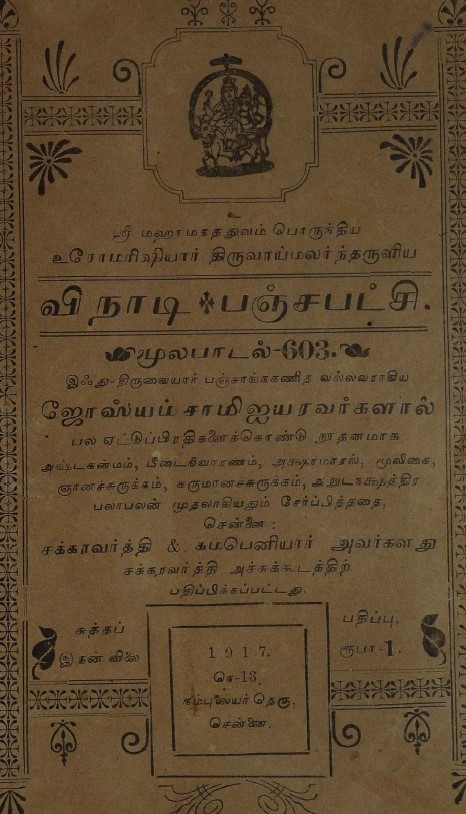 உ
ஸ்ரீ மஹாமகத்துவம் பொருந்திய
உரோமரிஷியார் திருவாய்மலர்ந்தருளிய
விநாடி பஞ்சபட்சி.
மூலபாடல்-603.
இஃது-திருவையார் பஞ்சாங்ககணித வல்லவராகிய
ஜோஸ்யம் சாமிஐயரவர்களால்
பல ஏட்டுப்பிரதிகளைக்கொண்டு நூதனமாக
அஷ்டகன்மம், பீடைநிவாரணம், அக்ஷரமாரல், மூலிகை,
ஞானச்சுருக்கம், கருமானச்சுருக்கம்,
பலாபலன் முதலாகியதும் சேர்ப்பித்ததை,
சென்னை:
சக்காவர்த்தி & கம்பெனியார் அவர்களது
சக்காவர்த்தி அச்சுக்கூடத்திற்
பதிப்பிக்கப்பட்டது.
சுத்தப்
பதிப்பு.
இதன் விலை
ரூபா-1.
1917.
13,
தெரு,
சென்னை.